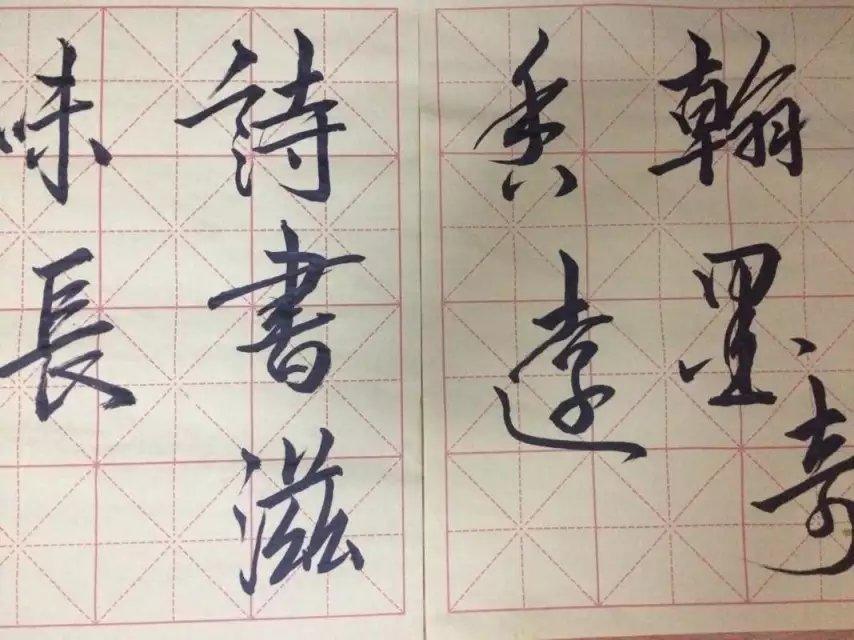 翰墨奇
香遠
詩書滋
味長